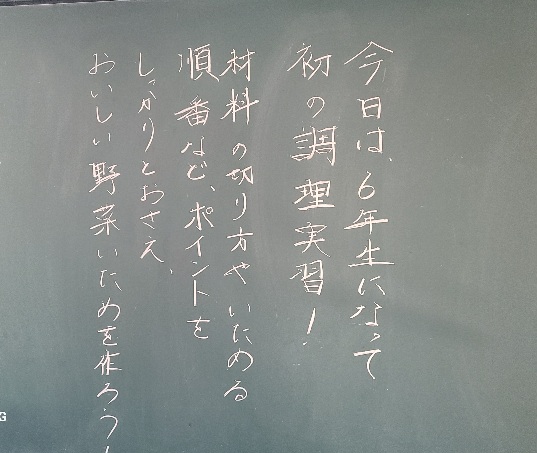 今日は、6年生になって
初の調理実習！
材料の切り方やいためる
順番など、ポイントを
しっかりとおさえ、
おいしい野菜いためを作ろう！
G